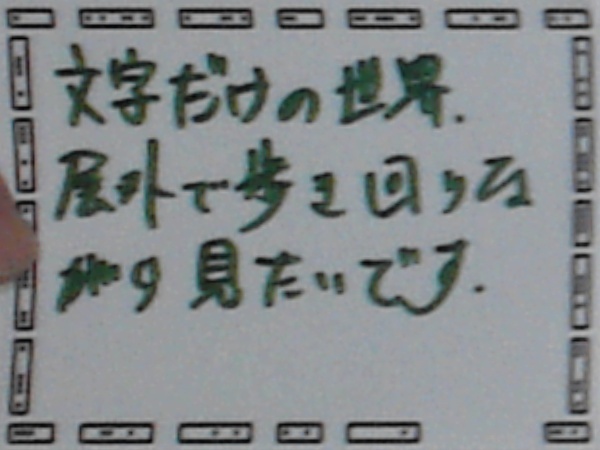 文字だけの世界.
屋外で歩き回りな
がら見たいです.